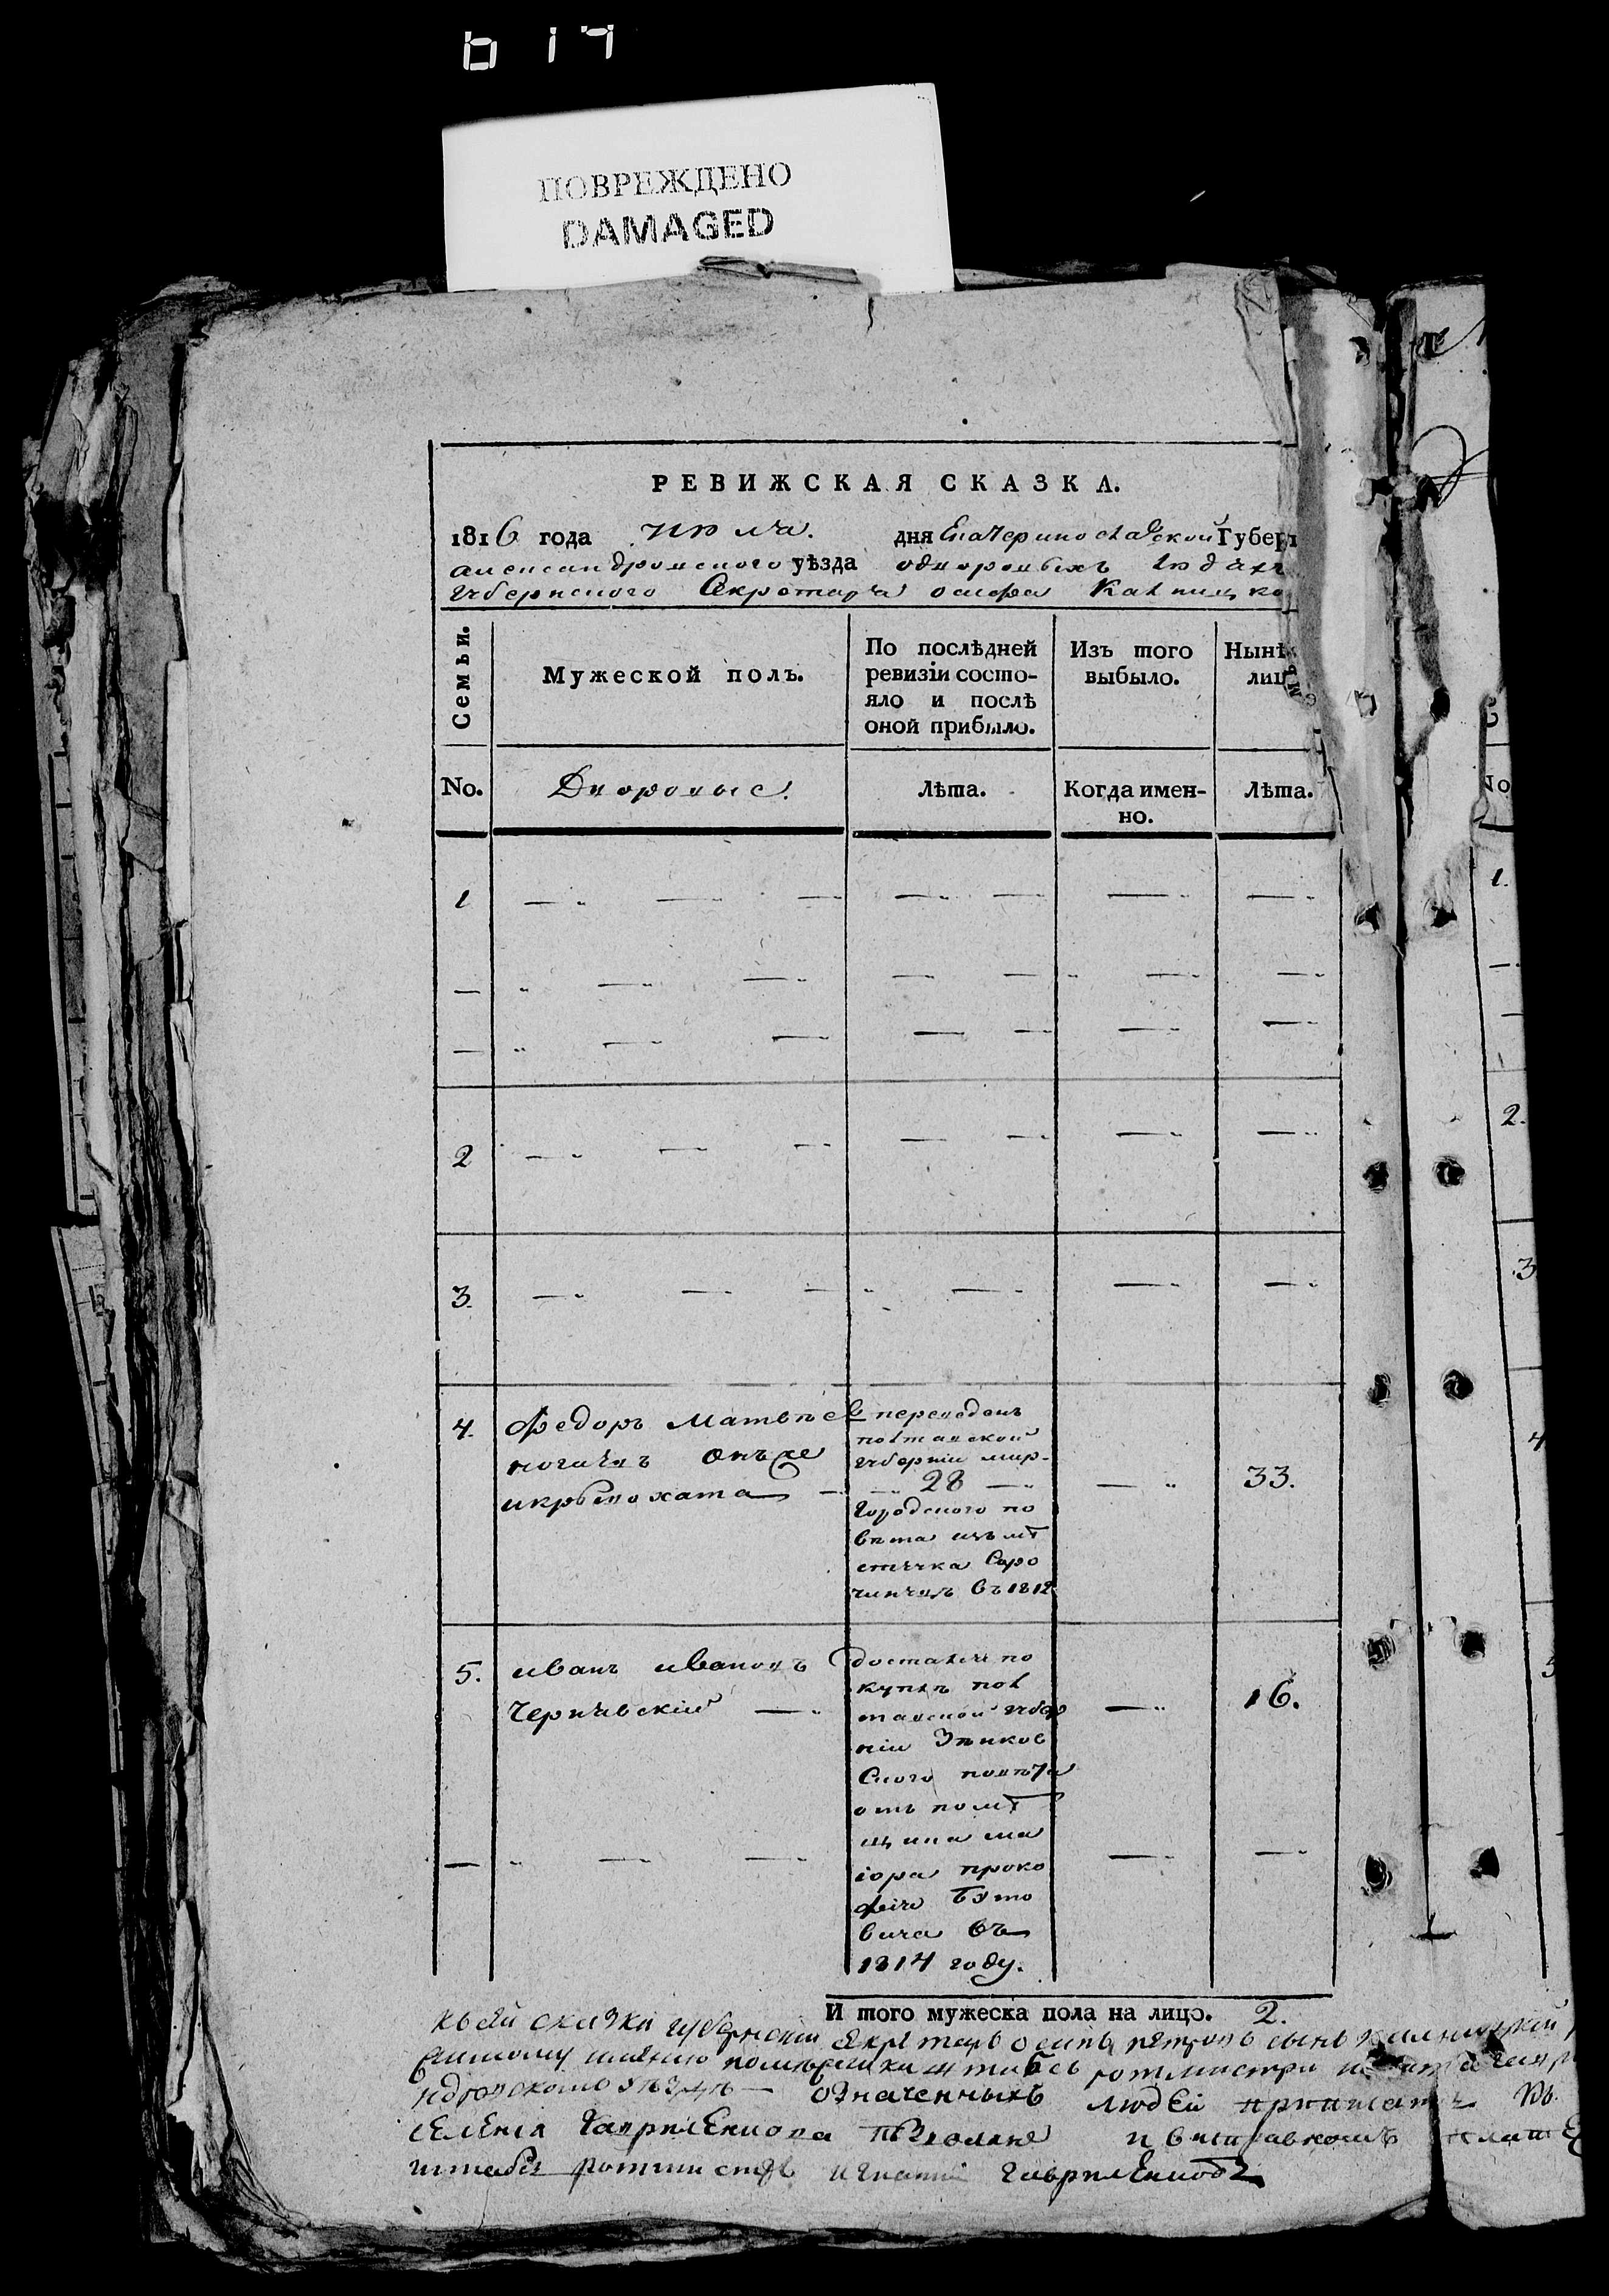 ПОВРЕЖДЕНО
DAMAGED
РЕВИЖСКАЯ СКАЗКА.
1816 года июля дня Екатеринославской Губер
александровского уѣзда одворовыхъ людяхъ
губернского Секретаря осипа Калницко
Семьи.
Мужеской полъ.
По послѣдней
ревизіи состо-
яло и послѣ
оной прибыло.
Изъ того
выбыло.
Нынѣ
лиц
No.
Дворовые.
Лѣта.
Когда имен-
но.
Лѣта.
1
2
3.
4.
Федоръ Матвѣев
онъ же
переведенъ
полтавской
губерніи мир-
28
городского по
вѣта изъ мѣ
стечка Соро
чинчахъ въ 1812
33.
5.
иванъ ивановъ
Чернявскій
достался по
купкѣ пол
тавской губер
ніи Зѣнков
ского повѣта
отъ помѣ
щика ма
іора проко
фія Буто
вича въ
1814 году.
16.
И того мужеска пола на лицо. 2.
сказки губернскій секретарь осипъ петровъ сынъ калницкій
ротмистра
означенныхъ людей приписать
селенія гавриленкова
ротмистръ игнатій гавриленковъ
No
1.
2.
3
4